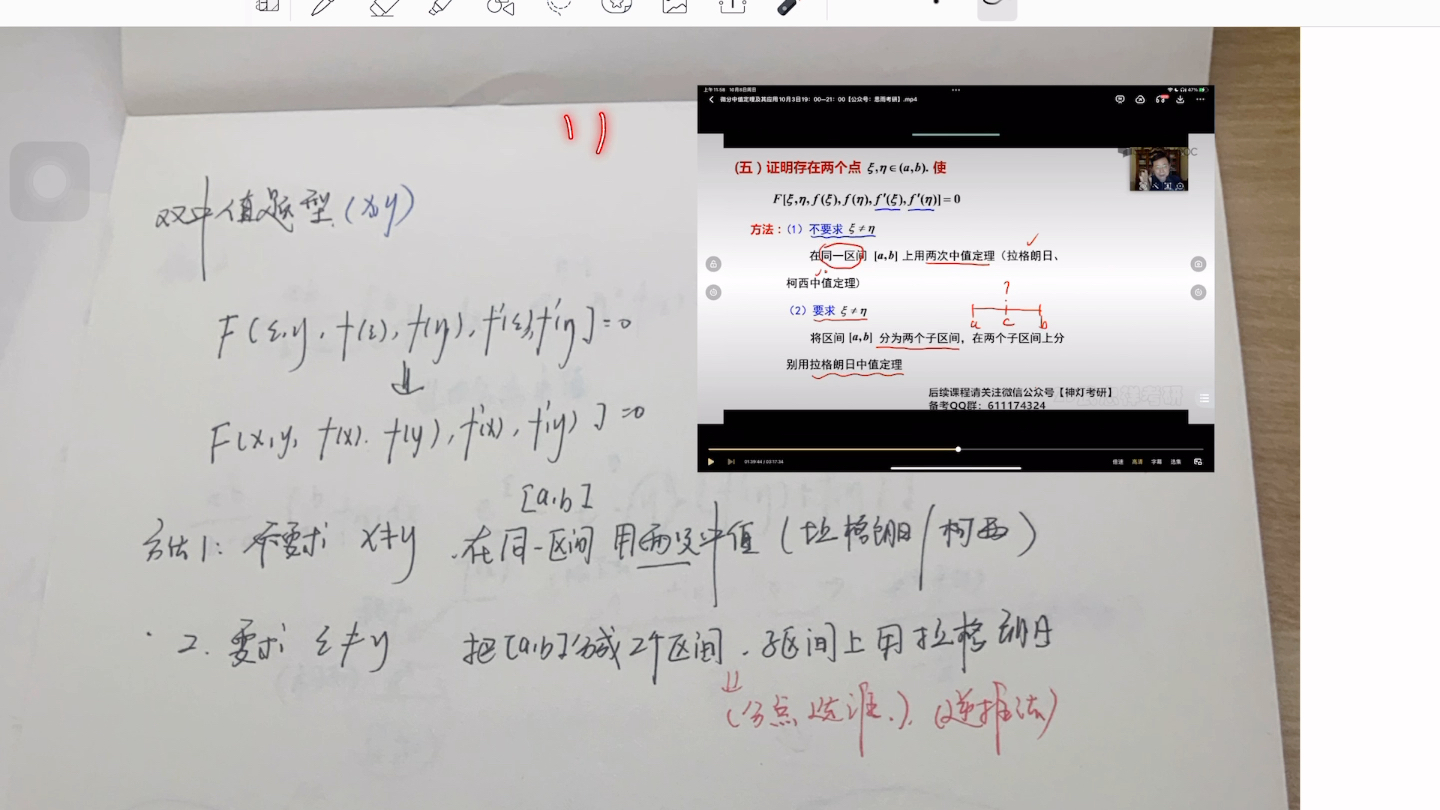 双中值题型(x,y)
F(ξ,y,f(ξ),f(y),f'(ξ),f'(η]=0
↓
F(x,y,f(x).f(y),f'(x),f'(y)]=0
[a,b]
方法1:不要求 x≠y .在同一区间 用两次中值(拉格朗日/柯西)
2.要求 ξ≠y 把[a,b]分成2个区间.子区间上用拉格朗日
(分点选谁.).(逆推法)
上午11:58 10月8日周日
47%
微分中值定理及其应用10月3日19:00—21:00【公众号:思图考研】.mp4
(五)证明存在两个点 ξ,η∈(a,b). 使
F[ξ,η,f(ξ),f(η),f'(ξ),f'(η)]=0
方法:(1)不要求 ξ≠η
在同一区间 [a,b] 上用两次中值定理(拉格朗日、
柯西中值定理)
(2)要求 ξ≠η
?
a c b
将区间 [a,b] 分为两个子区间,在两个子区间上分
别用拉格朗日中值定理
后续课程请关注微信公众号【神灯考研】
备考QQ群:611174324
倍速 高清 字幕 选集